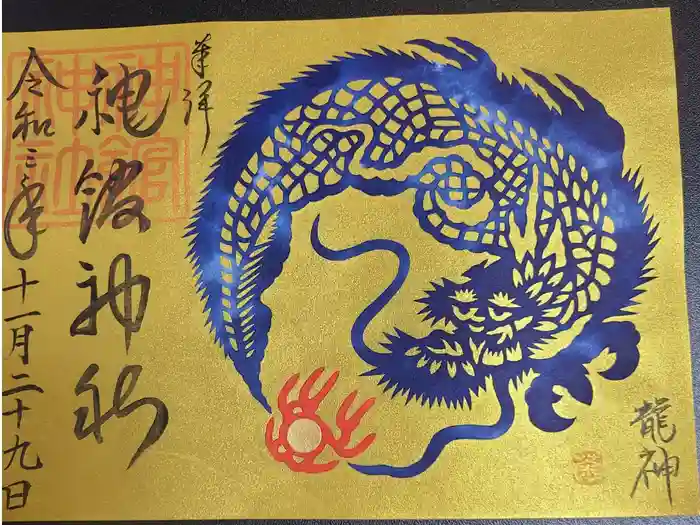 龍神
奉拝
神館神社
神館
神社
令和三年十一月二十九日